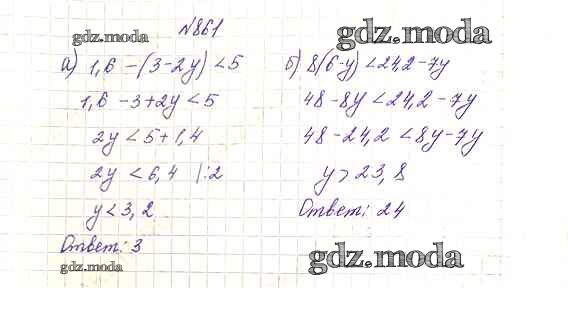 №861
gdz.moda
gdz.moda
а) 1,6 - (3-2y) < 5
1,6 - 3 + 2y < 5
2y < 5 + 1,4
2y < 6,4 |:2
y < 3,2
Ответ: 3
б) 8(6-y) < 24,2 - 7y
48 - 8y < 24,2 - 7y
48 - 24,2 < 8y - 7y
y > 23,8
Ответ: 24
gdz.moda
gdz.moda